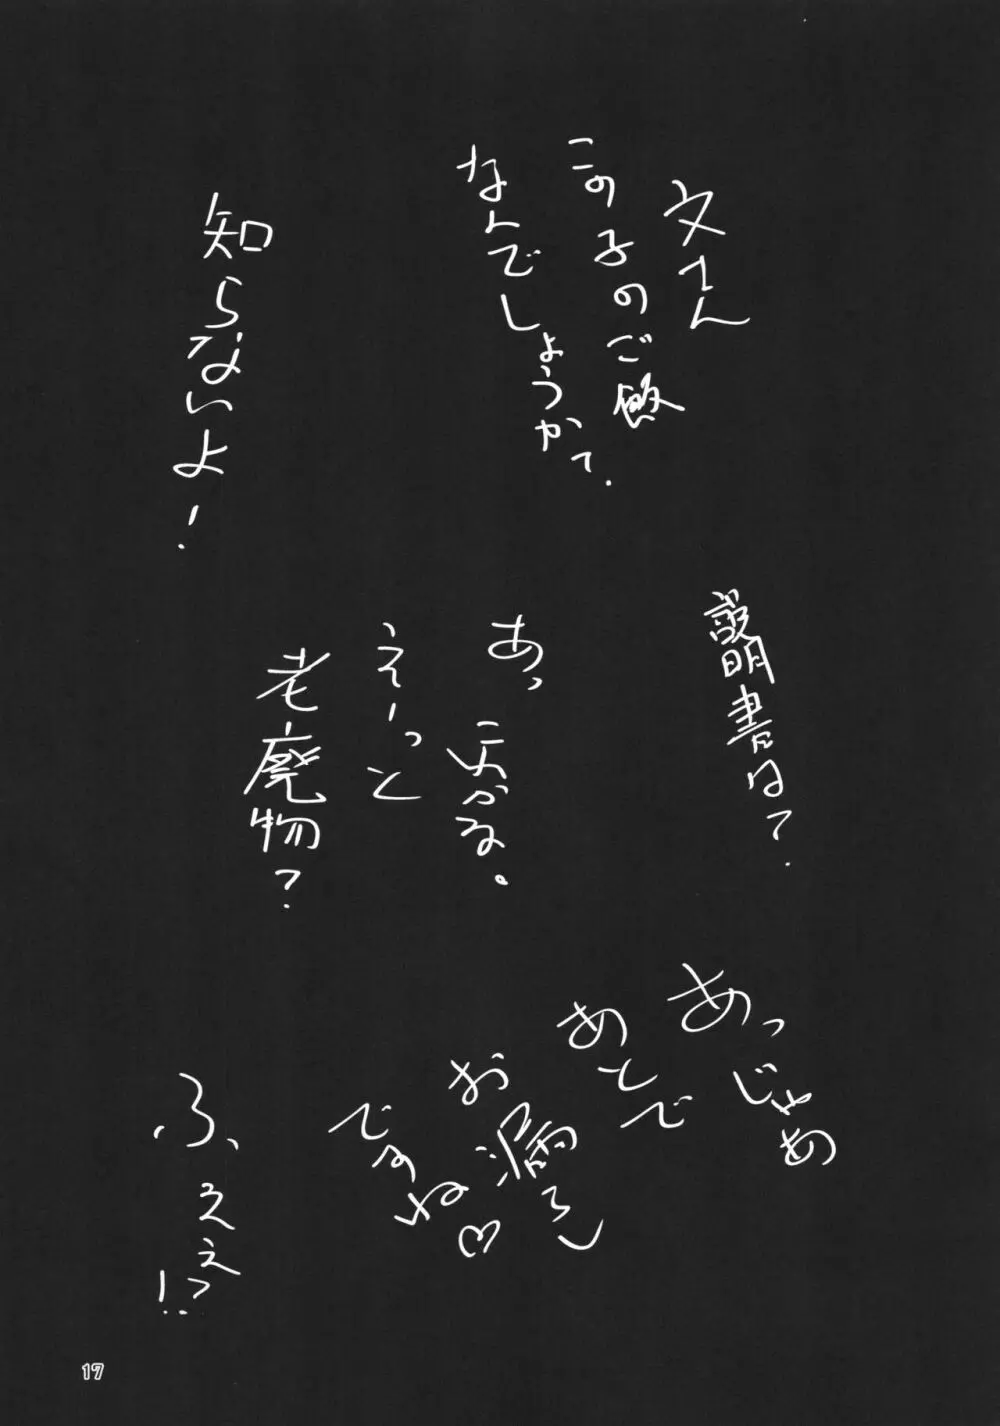 文さん
この子のご飯
なんでしょうかて.
知らないよ!
説明書は?
あっ
天かな。
えーっと
老廃物?
あっじゃあ
あとで
お漏らし
ですね♡
ふ、ええ!?
17